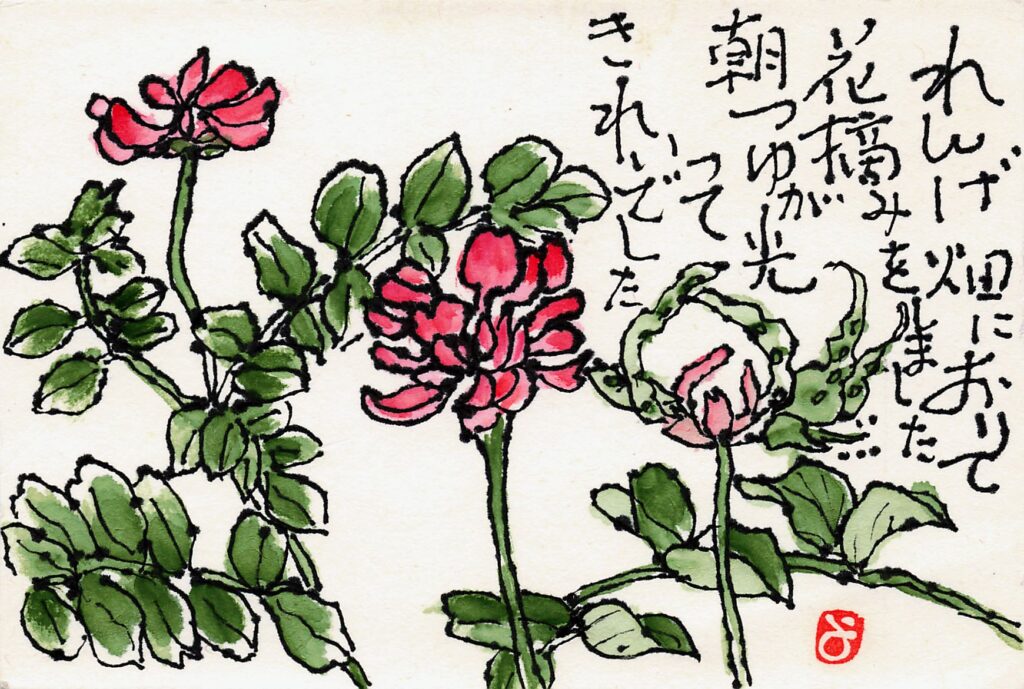 れんげ畑におりて
花摘みをしました…
朝つゆが光
って
きれいでした